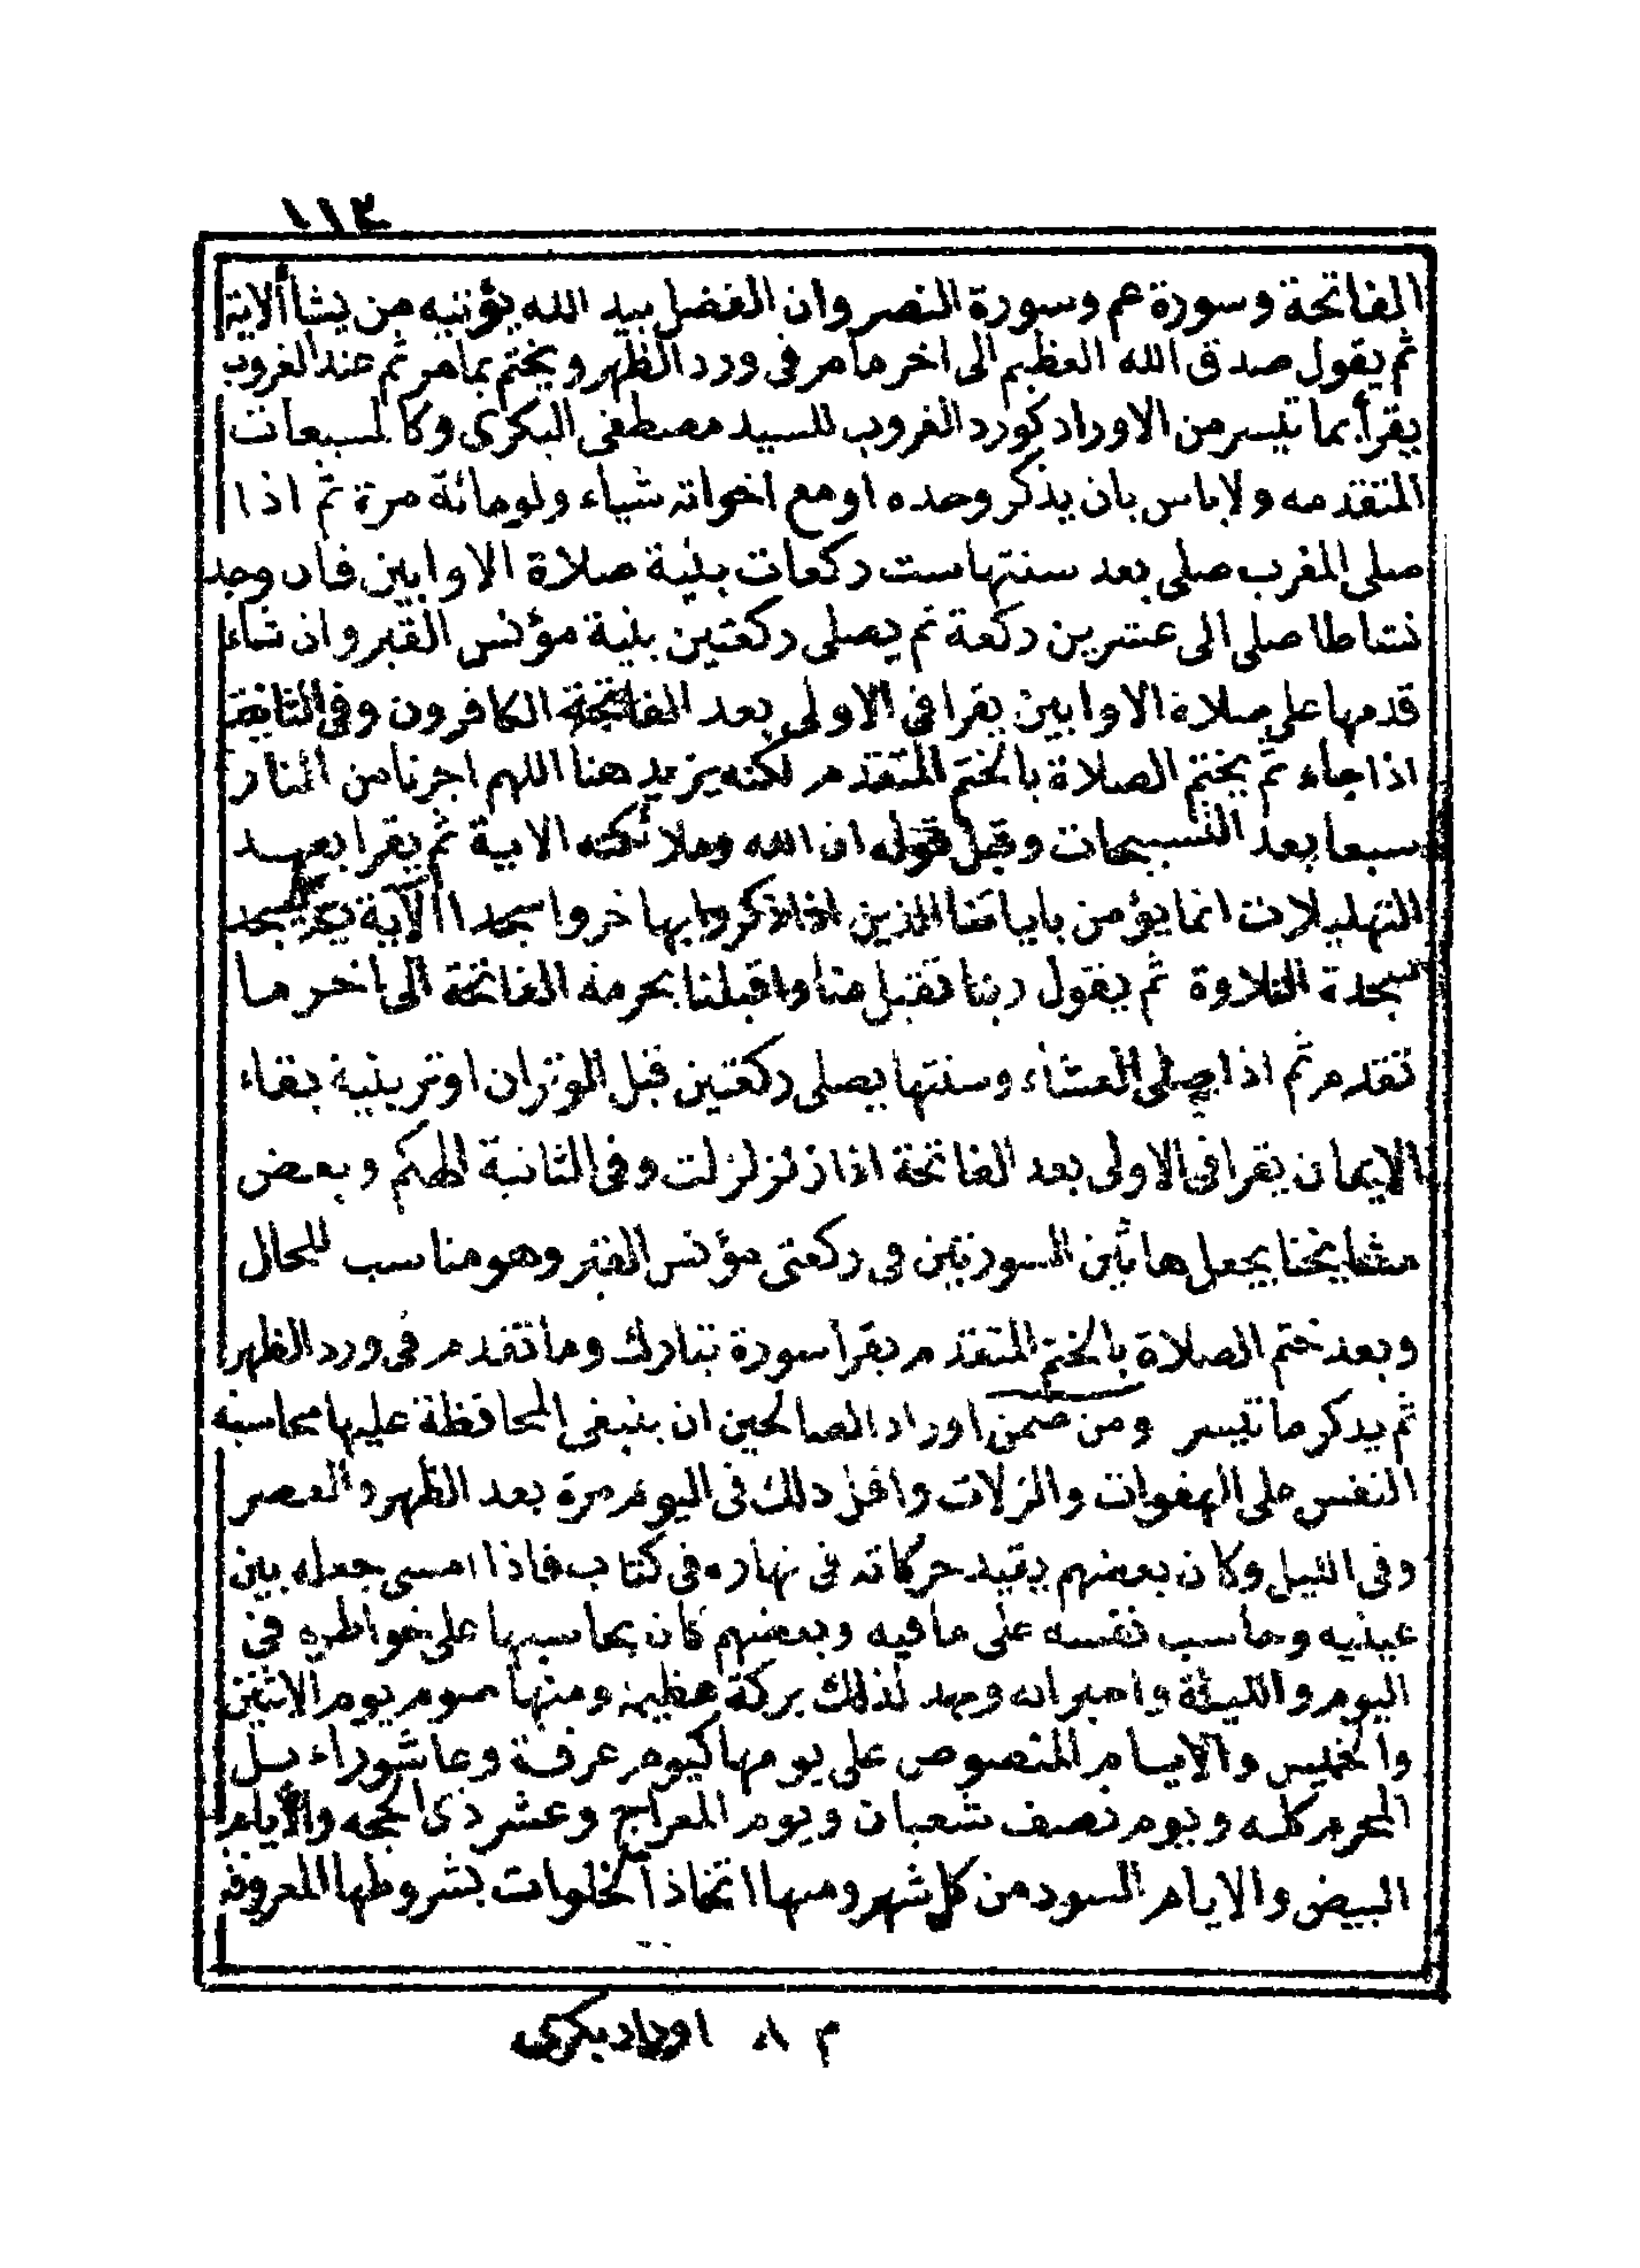 ١١٣
الفاتحة وسورة عم وسورة النصر وان الفضل بيد الله يؤتيه من يشا الاية
ثم يقول صدق الله العظيم الى اخر ما مر فى ورد الظهر ويختم بما مر ثم عند الغروب
يقرأ بما تيسر من الاوراد كورد الغروب للسيد مصطفى البكرى وكالمسبعات
المتقدمه ولاباس بان يذكر وحده او مع اخوانه شياء ولو مائة مرة ثم اذا
صلى المغرب صلى بعد سنتها ست ركعات بنية صلاة الاوابين فان وجد
نشاطا صلى الى عشرين ركعة ثم يصلى ركعتين بنية مؤنس القبر وان شاء
قدمها على صلاة الاوابين يقرا فى الاولى بعد الفاتحة الكافرون وفى الثانية
اذا جاء ثم يختم الصلاة بالختم المتقدم لكنه يزيد هنا اللهم اجرنا من النار
سبعا بعد التسبيحات وقبل قوله ان الله وملائكته الاية ثم يقرا بعد
التهليلات انما يؤمن باياتنا الذين اذا ذكروا بها خروا سجدا الآية يسجد
سجدة التلاوة ثم يقول ربنا تقبل منا واقبلنا بحرمة الفاتحة الى اخر ما
تقدم ثم اذا صلى العشاء وسنتها يصلى ركعتين قبل الوتر ان اوتر بنية بقاء
الايمان يقرا فى الاولى بعد الفاتحة اذا زلزلت وفى الثانية الهكم وبعض
مشايخنا يجعل هاتين السورتين فى ركعتى مؤنس القبر وهو مناسب للحال
وبعد ختم الصلاة بالختم المتقدم يقرأ سورة تبارك وما تقدم فى ورد الظهر
ثم يدكر ما تيسر ومن ضمن اوراد الصالحين ان ينبغى المحافظة عليها محاسبة
النفس على الهفوات والزلات واقل دلك فى اليوم مرة بعد الظهر والعصر
وفى الليل وكان بعضهم يقيد حركاته فى نهاره فى كتاب فاذا امسى جعله بين
عينيه وحاسب نفسه على ما فيه وبعضهم كان يحاسبها على خواطره فى
اليوم والليلة واخبر انه وجد لذلك بركة عظيمة ومنها صوم يوم الاثنين
والخميس والايام المنصوص على يومها كيوم عرفة وعاشوراء بل
المحرم كله ويوم نصف شعبان ويوم المعراج وعشر ذى الحجه والأيام
البيض والايام السود من كل شهر ومنها اتخاذ الخلوات بشروطها المعروفة
م ٨ اوراد بكرى